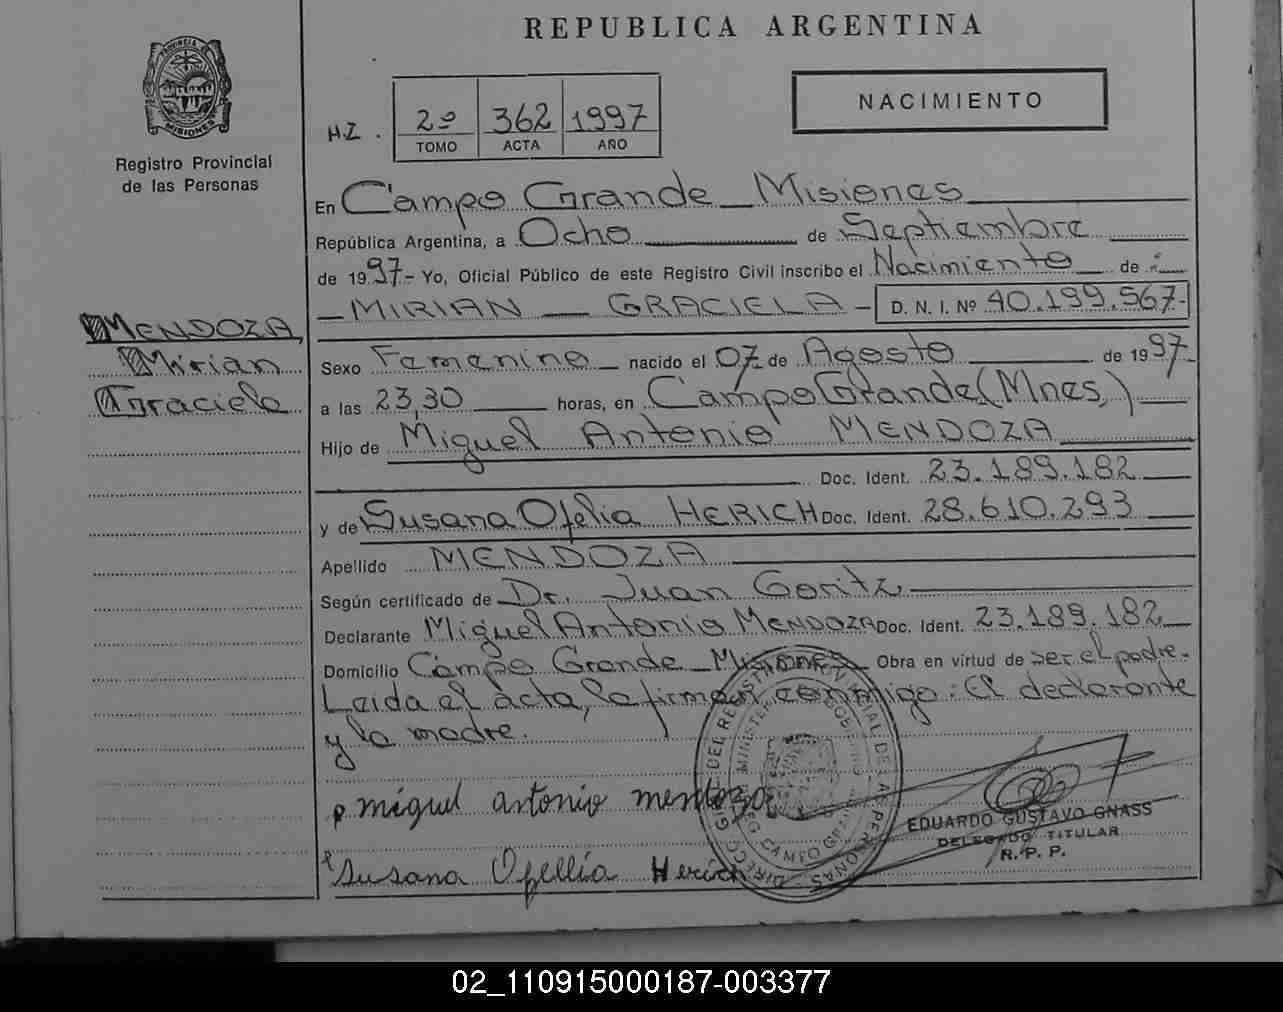 REPUBLICA ARGENTINA
PROVINCIA DE
MISIONES
Registro Provincial
de las Personas
H.Z.
2º 362 1997
TOMO ACTA AÑO
NACIMIENTO
En Campo Grande Misiones
República Argentina, a Ocho de Septiembre
de 1997- Yo, Oficial Público de este Registro Civil inscribo el Nacimiento de
-MIRIAN GRACIELA- D. N. I. Nº 40.199.567-
MENDOZA,
Mirian
Graciela
Sexo Femenino nacido el 07 de Agosto de 1997-
a las 23,30 horas, en Campo Grande,(Mnes,)
Hijo de Miguel Antonio MENDOZA
Doc. Ident. 23.189.182
y de Susana Ofelia HERICH Doc. Ident. 28.610.293
Apellido MENDOZA
Según certificado de Dr. Juan Goritz
Declarante Miguel Antonio MENDOZA Doc. Ident. 23.189.182
Domicilio Campo Grande Misiones Obra en virtud de ser el padre.
Leida el acta, la firman conmigo: El declarante
y la madre.
miguel antonio mendoza
Susana Ofellia Herich
EDUARDO GUSTAVO GNASS
DELEGADO TITULAR
R. P. P.
02_110915000187-003377